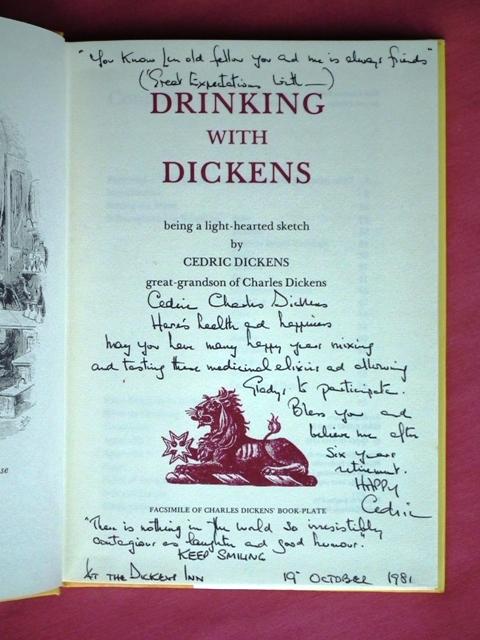 "You Know Len old fellow you and me is always friends"
(Great Expectations with—)
DRINKING
WITH
DICKENS
being a light-hearted sketch
by
CEDRIC DICKENS
great-grandson of Charles Dickens
Cedric Charles Dickens
Here's health and happiness
may you have many happy years mixing
and tasting these medicinal elixirs and allowing
Gladys to participate.
Bless you and
believe me after
six years
retirement.
HAPPY
Cedric
FACSIMILE OF CHARLES DICKENS' BOOK-PLATE
"There is nothing in the world so irresistibly
contagious as laughter and good humour."
KEEP SMILING
At THE DICKENS INN 19 OCTOBER 1981
se